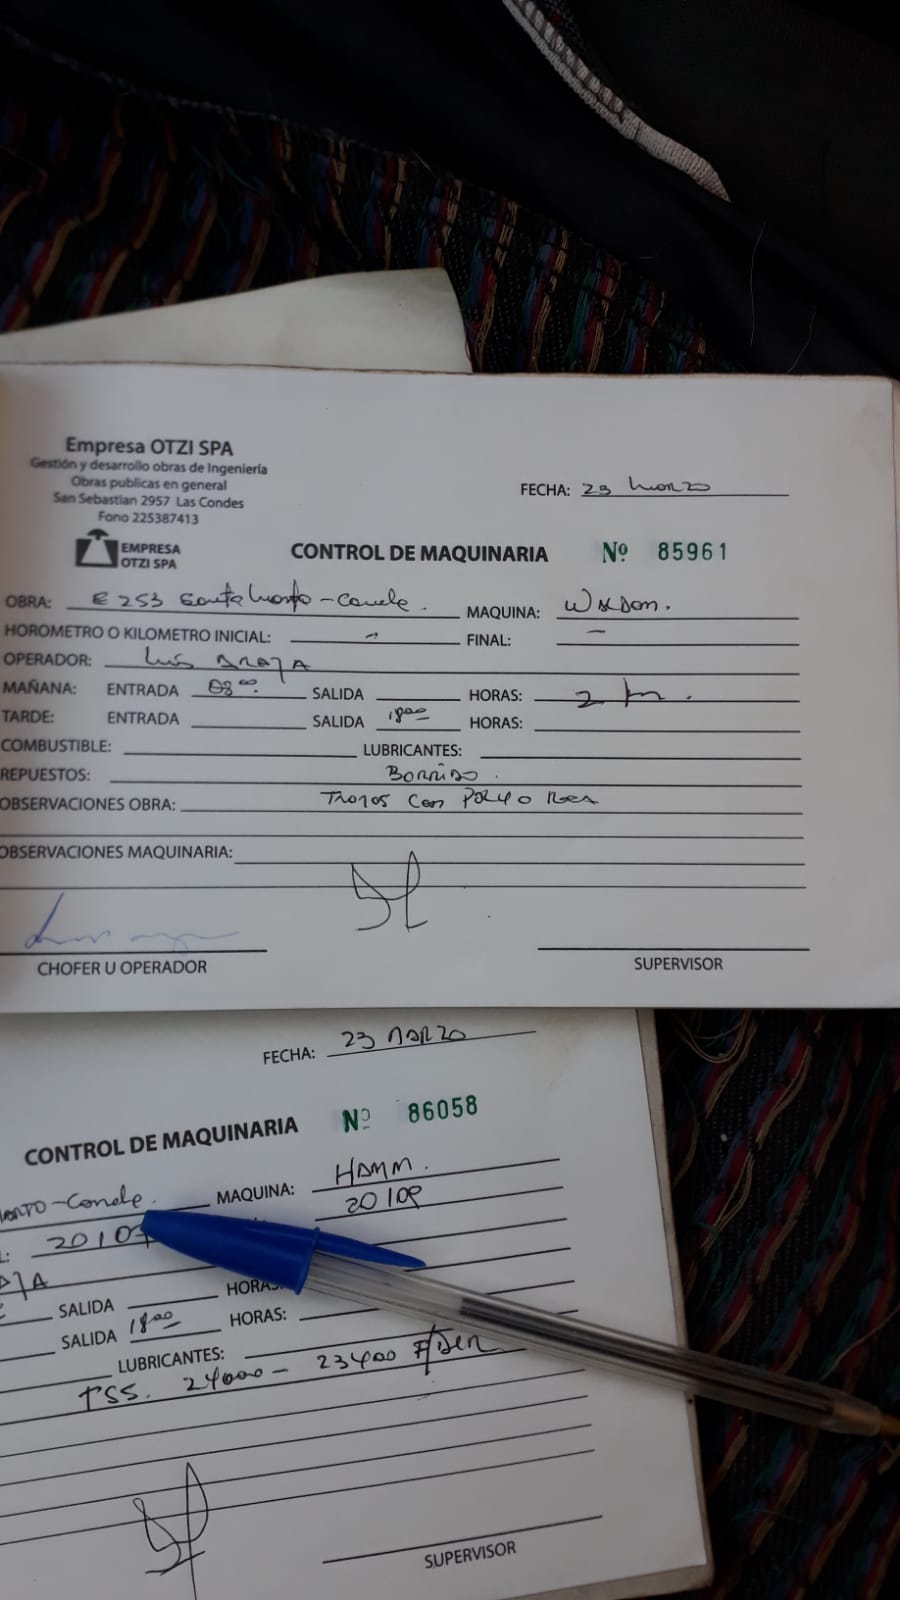 Empresa OTZI SPA
Gestión y desarrollo obras de Ingeniería
Obras publicas en general
San Sebastian 2957 Las Condes
Fono 225387413
EMPRESA
OTZI SPA
FECHA: 23 Marzo
CONTROL DE MAQUINARIA Nº 85961
OBRA: E 253 Santa Marta-Conde. MAQUINA:
HOROMETRO O KILOMETRO INICIAL: - FINAL: -
OPERADOR: Luis ARAYA
MAÑANA: ENTRADA 08:00 SALIDA HORAS: 2 hr.
TARDE: ENTRADA SALIDA 18:00 HORAS:
COMBUSTIBLE: LUBRICANTES:
REPUESTOS: BORRIDO.
OBSERVACIONES OBRA: Trozos Con
OBSERVACIONES MAQUINARIA:
CHOFER U OPERADOR
SUPERVISOR
FECHA: 23 MARZO
CONTROL DE MAQUINARIA Nº 86058
-Conde. MAQUINA: HAMM.
L: 20107 20109
AYA
SALIDA HORAS:
SALIDA 18:00 HORAS:
LUBRICANTES:
TSS. 24000 - 23400 F/Der
SUPERVISOR